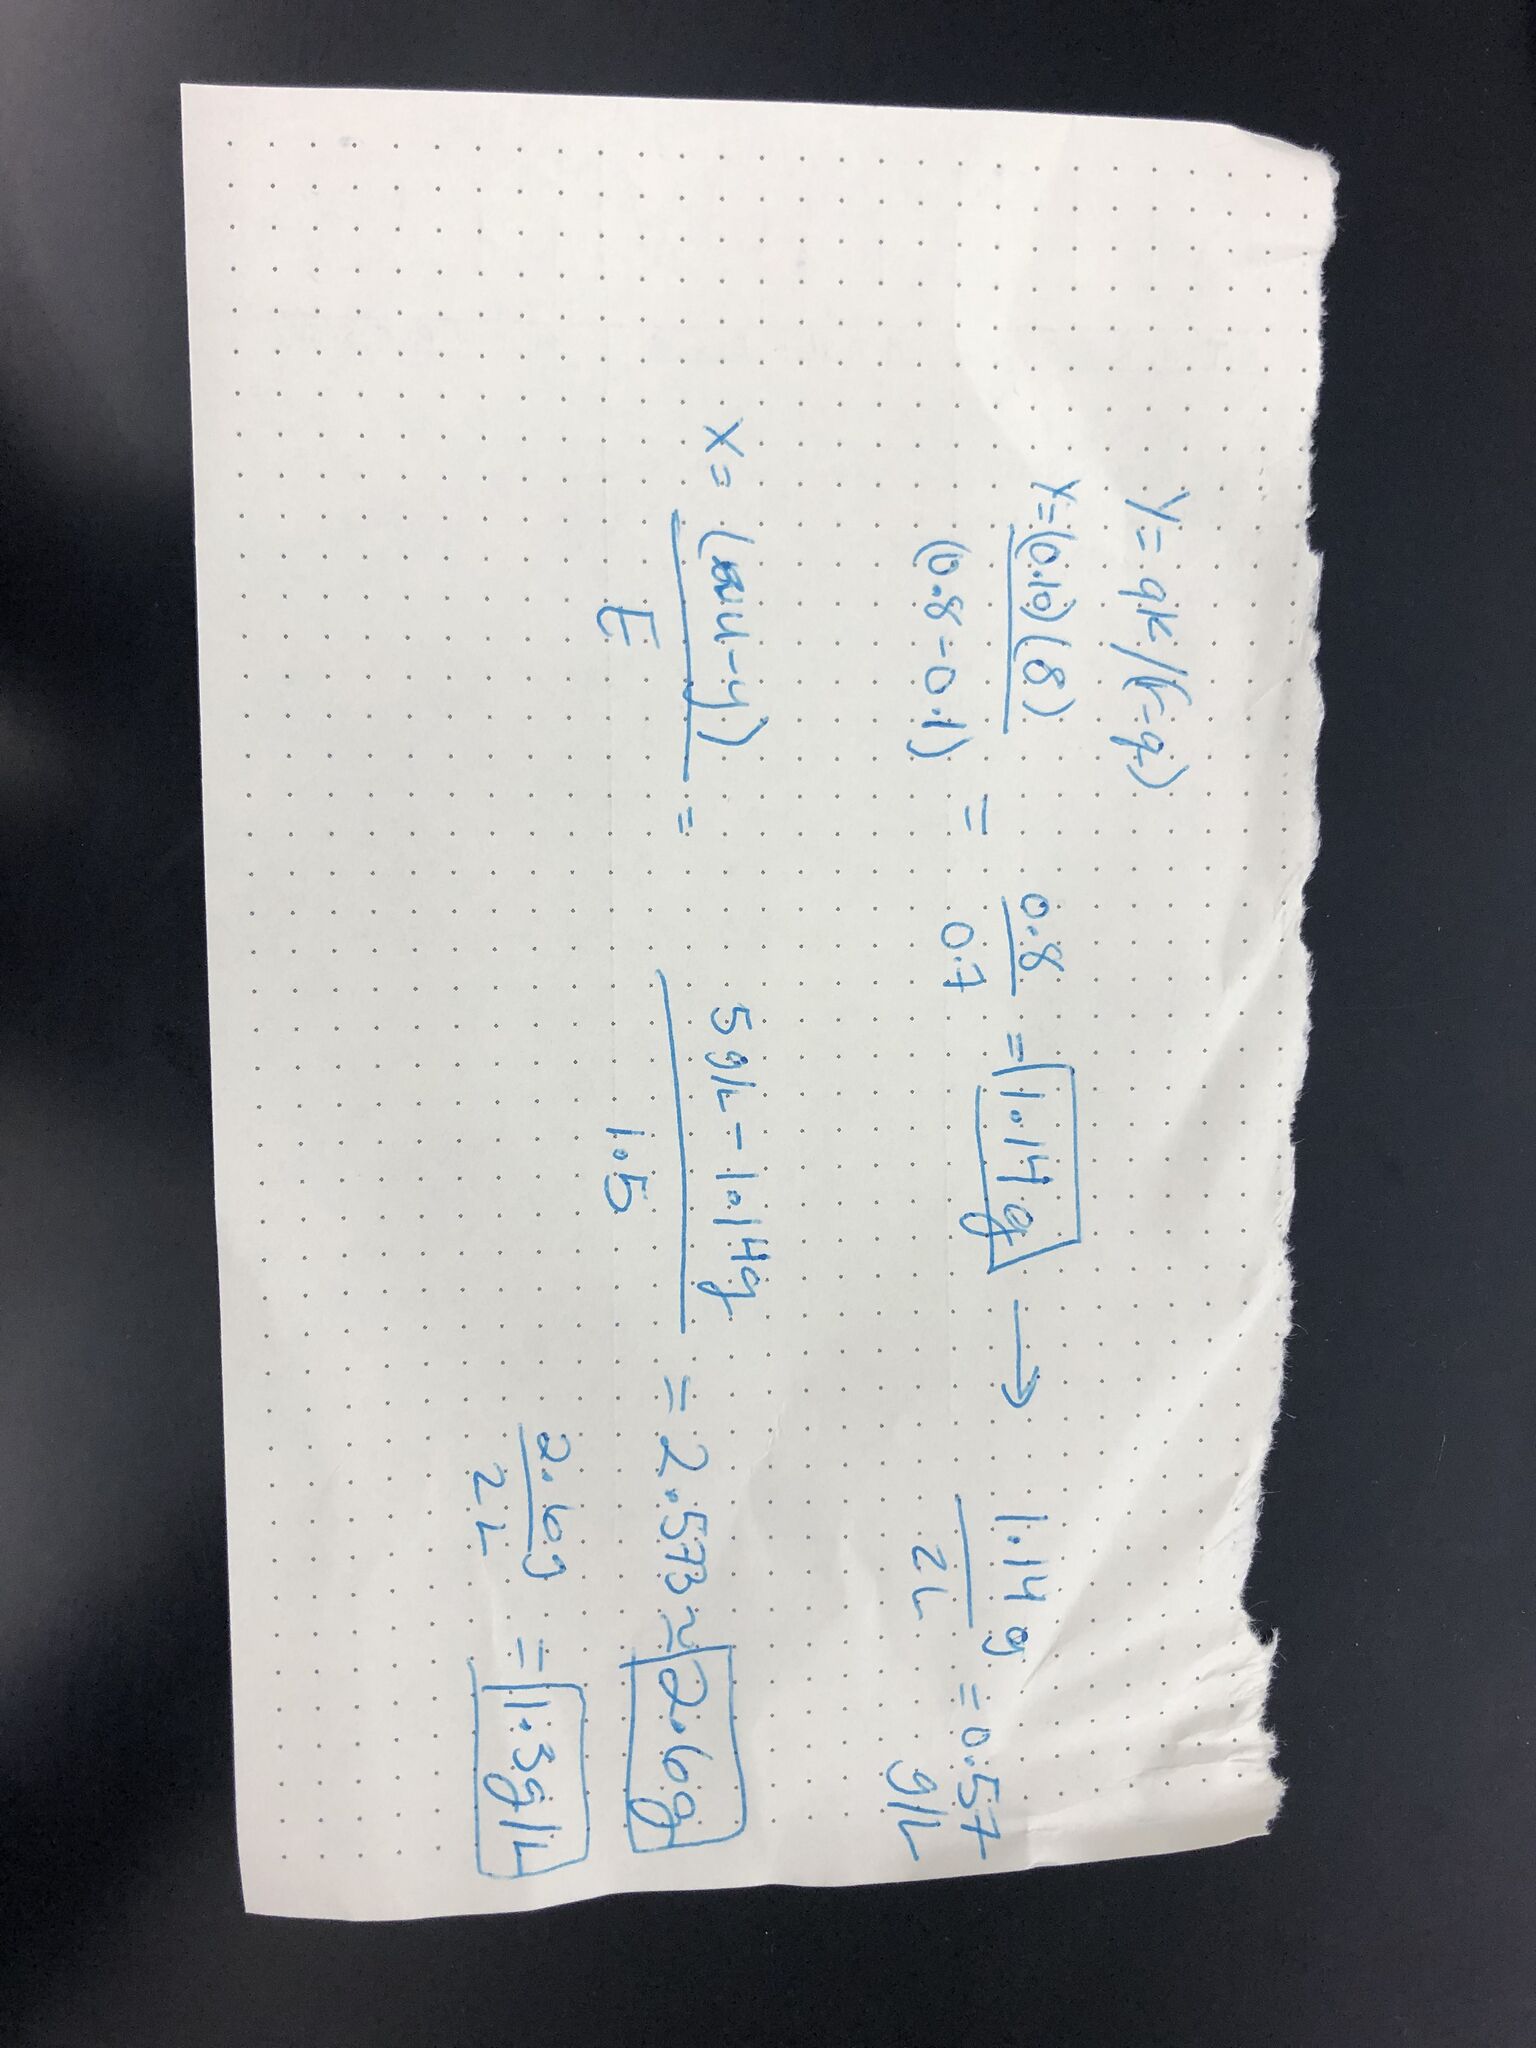 y = qk/(r-q)
y = (0.10)(8) / (0.8-0.1) = 0.8 / 0.7 = 1.14 g → 1.14 g / 2L = 0.57 g/L
x = ( -y) / E = 5 g/L - 1.14g / 1.5 = 2.573 ≃ 2.6g
2.6g / 2L = 1.3g/L